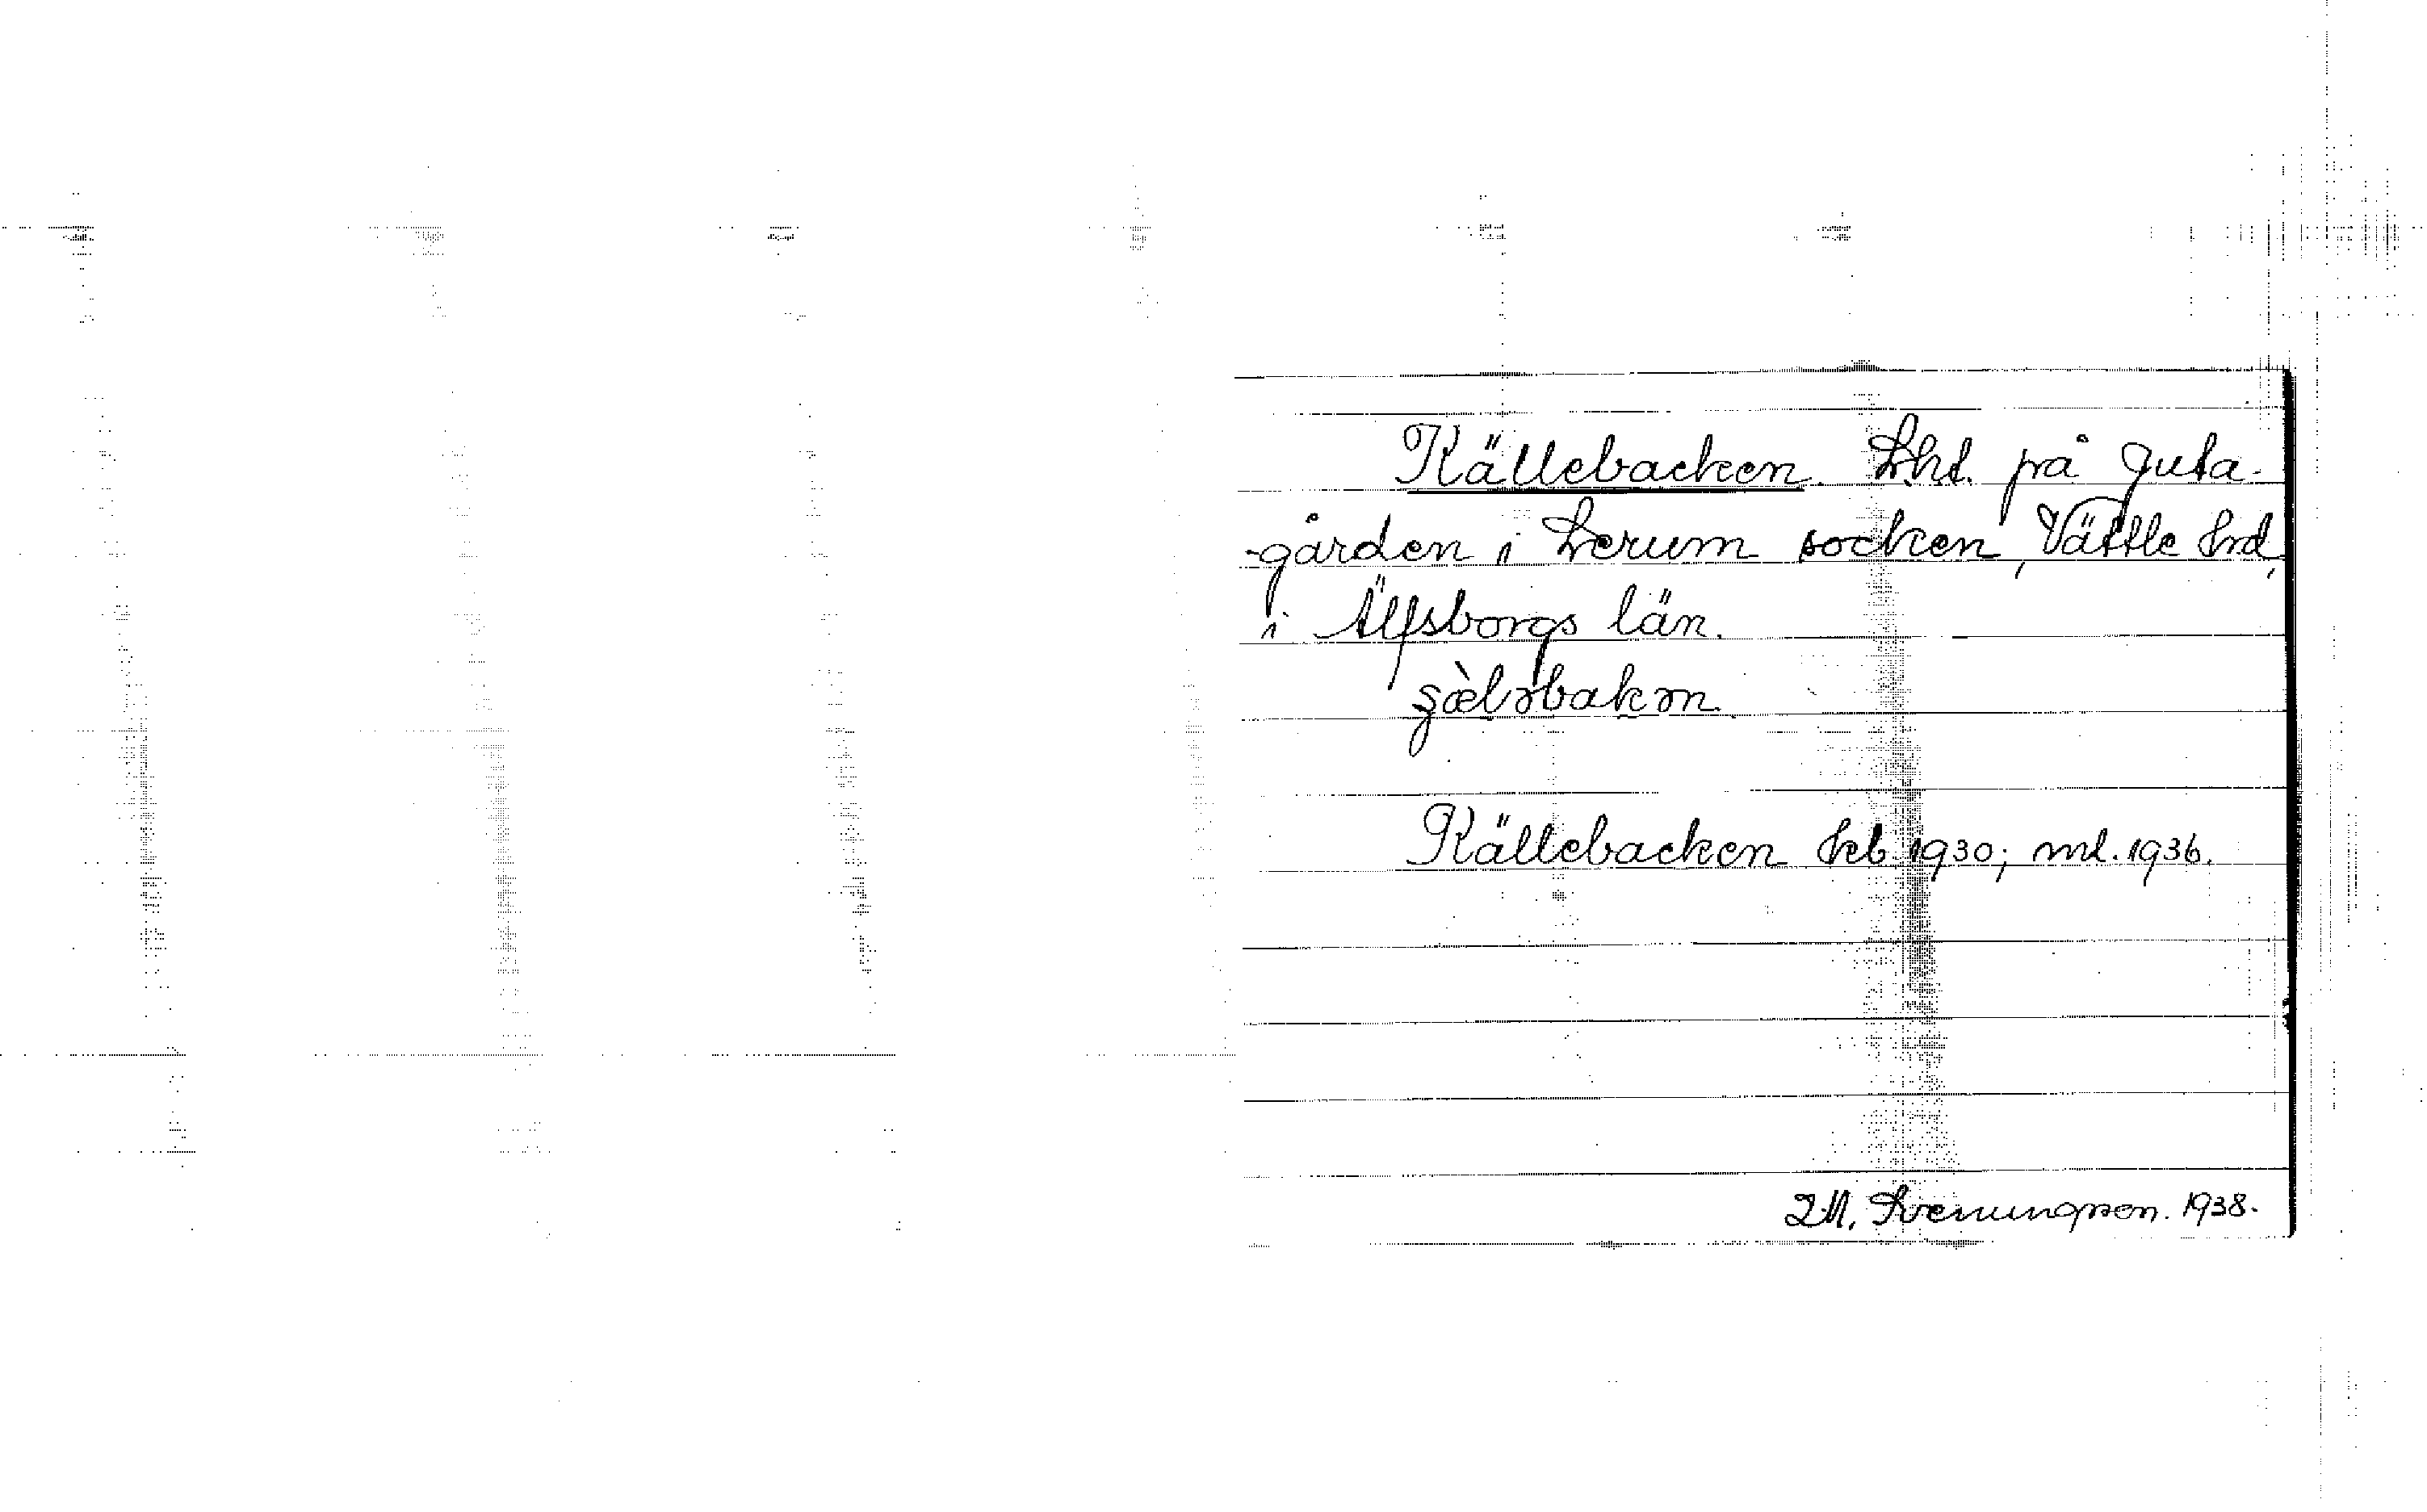 Källebacken. Lht. på Juta-
-gården i Lerum socken, Vättle hrd,
i Älfsborgs län.
Källebacken hfb 1930; ml. 1936.
Svenungsson. 1938.